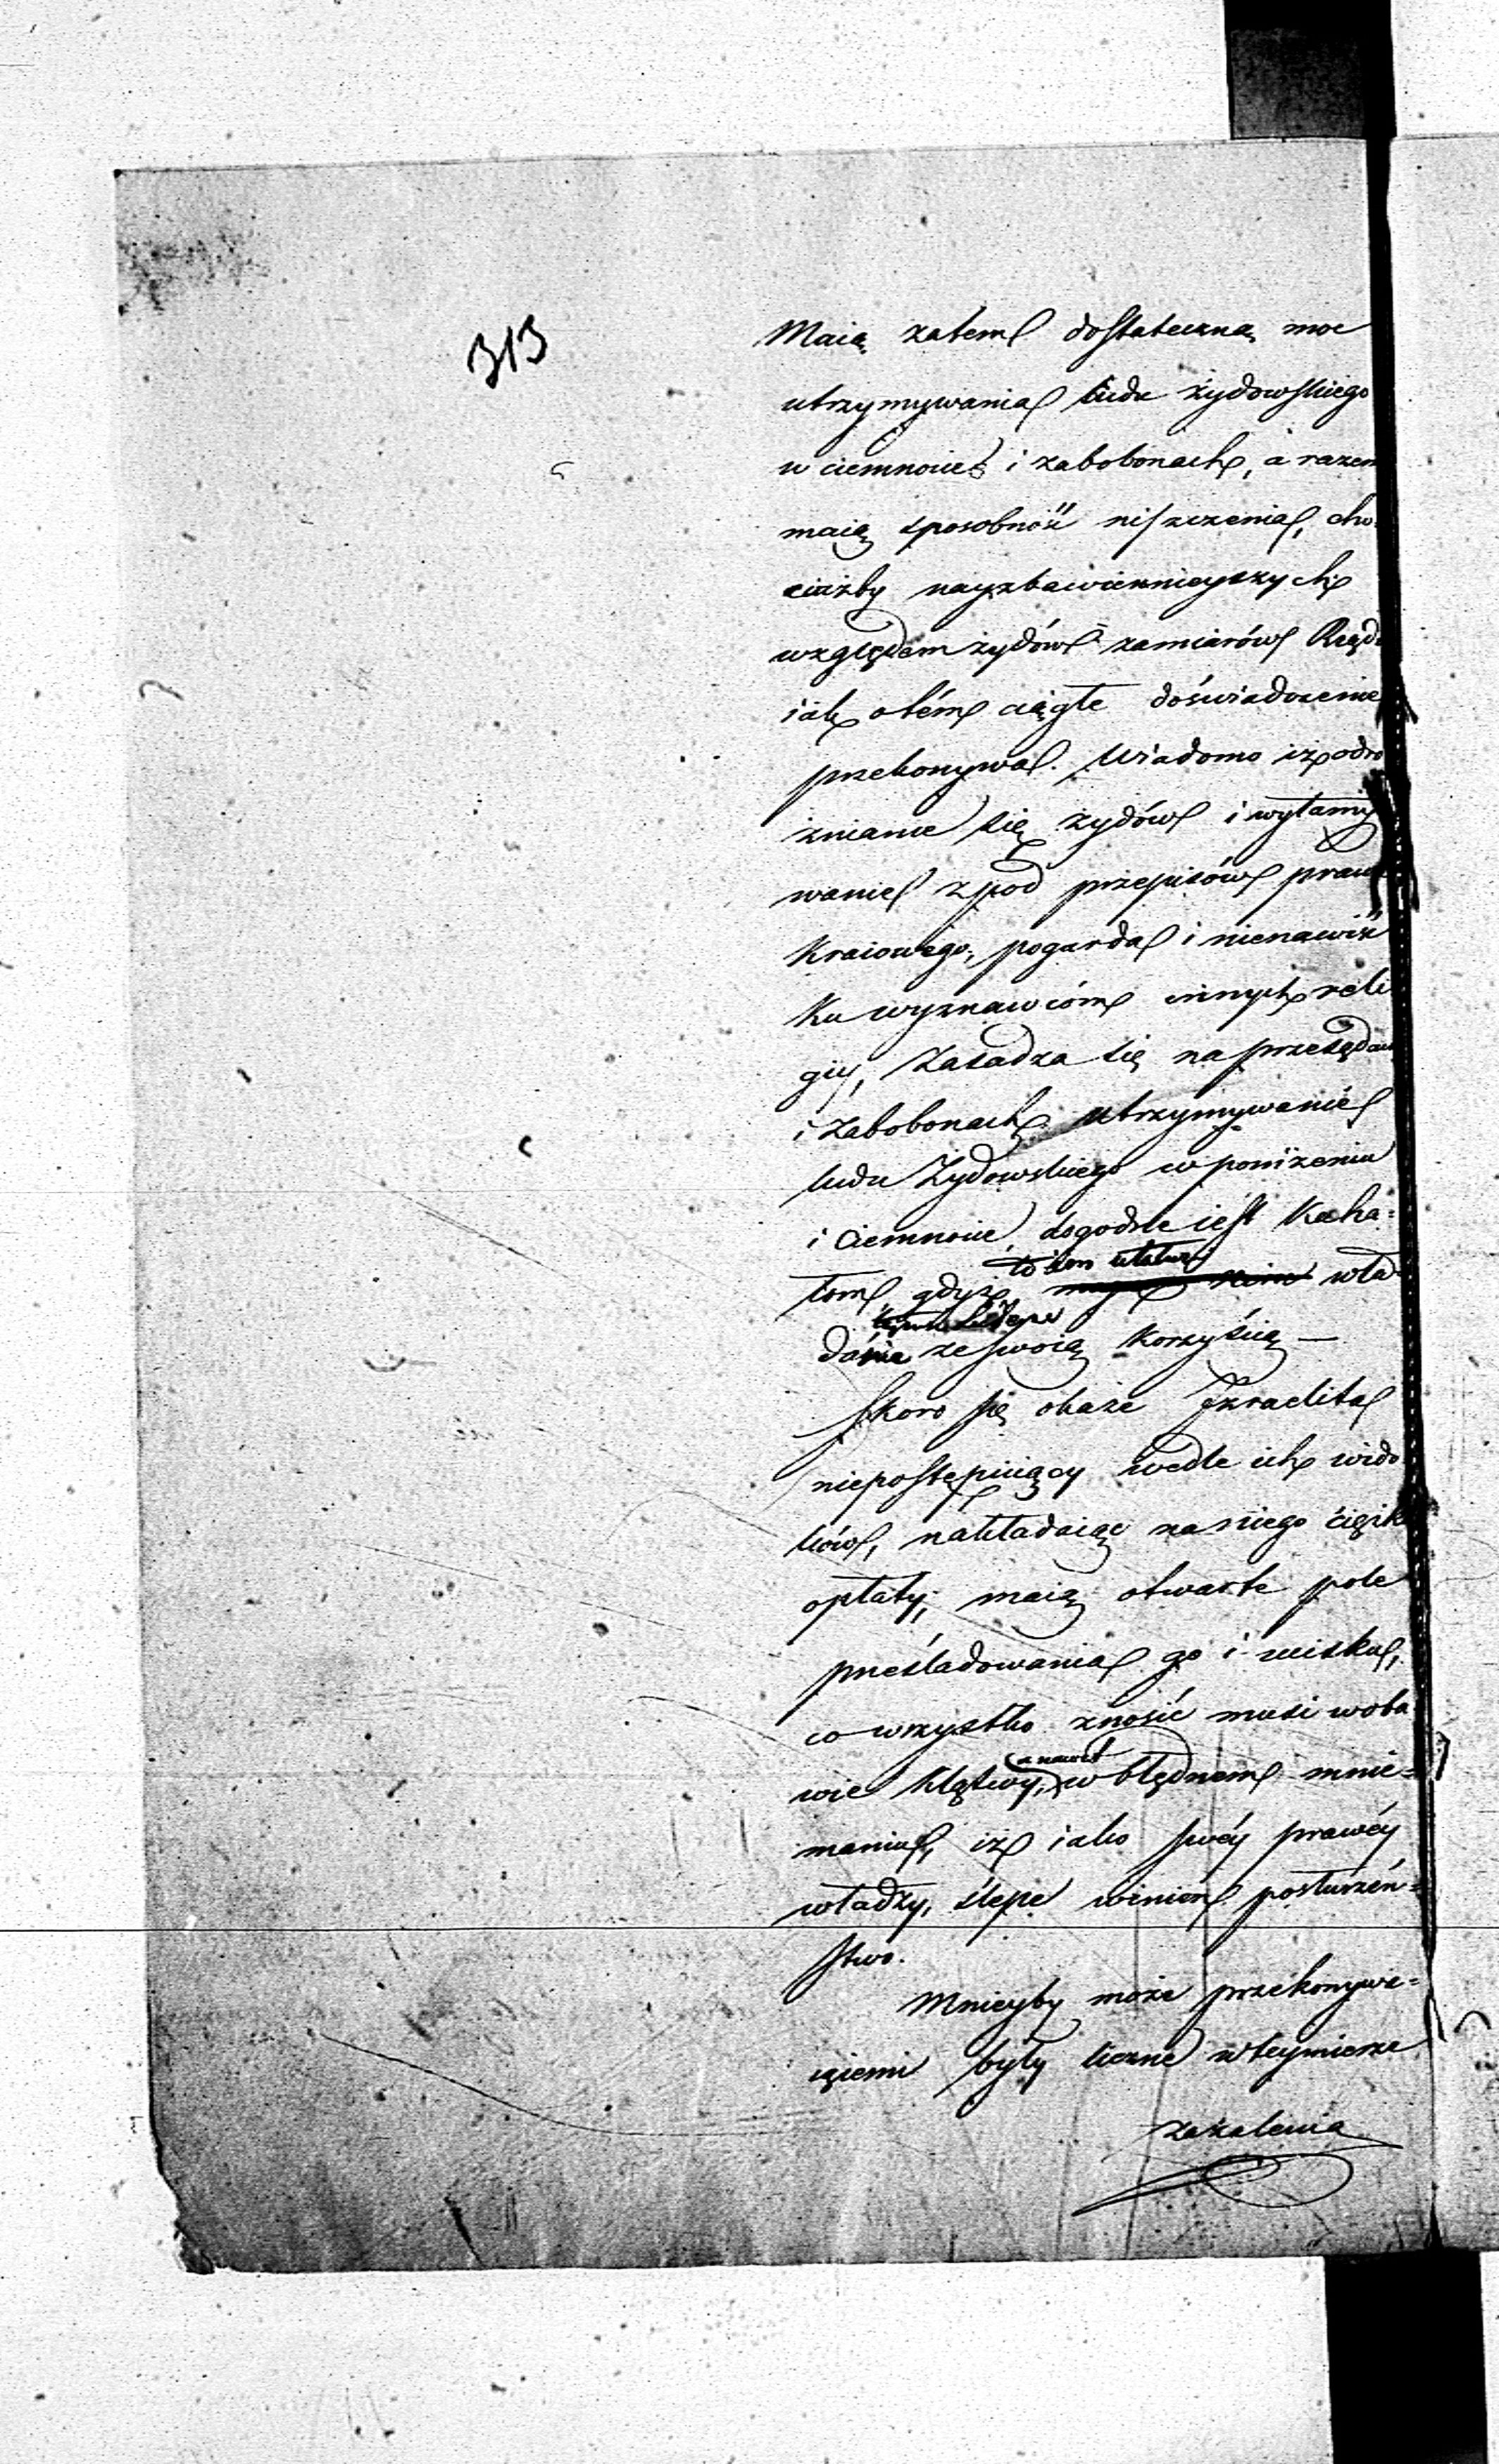 313
Maią zatem dostateczną moc
utrzymywania ludu żydowskiego
w ciemnocie i zabobonach, a razem
maią sposobność niszczenia, cho-
ciażby nayzbawiennieyszych
względem żydów zamiarów Rządu
iak o tém ciągłe doświadczenie
przekonywa. Wiadomo iż odró
żnianie się żydów i wyłamy
wanie z pod przepisów prawa
Kraiowego, pogarda i nienawiść
Ku wyznawcóm innych reli
giy, Zasadza się na przesądach
i Zabobonach Utrzymywanie
ludu Żydowskiego w poniżeniu
i Ciemnocie, dogodne iest Kaha=
to im ułatwia
łom gdyż wła-
danie ze swoią Korzyścią —
Skoro się okaże Izraelita
niepostępuiący wedle ich wido
ków, nakładaiąc na niego ciężk
opłaty, maią otwarte pole
prześladowania go i ucisku,
co wszystko znosić musi w oba
a nawet
wie Klątwy, w błędnem mnie=
maniu, iż iako swéy prawéy
władzy, ślepe winien posłuszeń=
stwo.
Mnieyby może przekonywa=
iącemi były liczne w téymierze
zażalenia